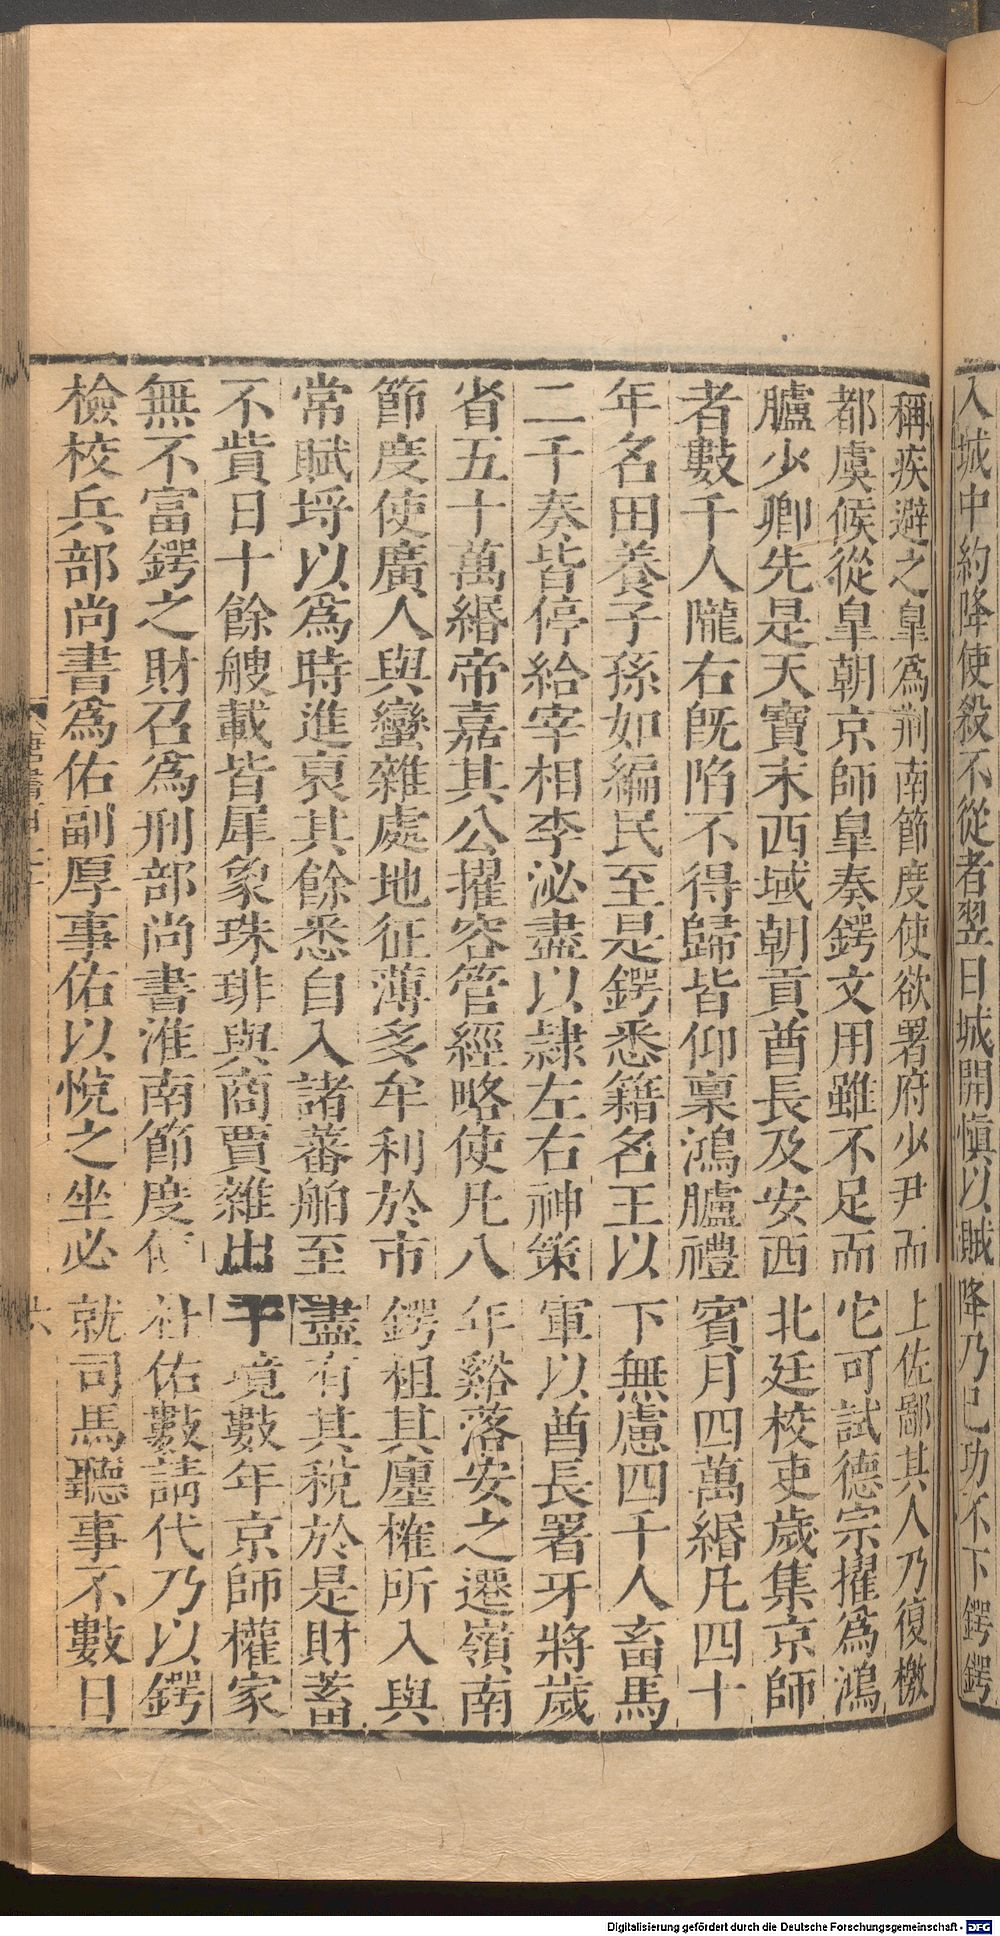 入城中約降使殺不從者翌日城開愼以賊降乃已功不下鍔鍔
稱疾避之皐爲荆南節度使欲署府少尹而上佐鄙其人乃復檄
都虞候從皐朝京師皐奏鍔文用雖不足而它可試德宗擢爲鴻
臚少卿先是天寶末西域朝貢酋長及安西北廷校吏歲集京師
者數千人隴右旣陷不得歸皆仰稟鴻臚禮賓月四萬緡凡四十
年名田養子孫如編民至是鍔悉籍名王以下無慮四千人畜馬
二千奏皆停給宰相李泌盡以隷左右神策軍以酋長署牙將歲
省五十萬緡帝嘉其公擢容管經略使凡八年谿落安之遷嶺南
節度使廣人與蠻雜處地征薄多牟利於市鍔租其廛榷所入與
常賦埒以爲時進裒其餘悉自入諸蕃舶至盡有其稅於是財蓄
不貲日十餘艘載皆犀象珠琲與商賈雜出于境數年京師權家
無不富鍔之財召爲刑部尚書淮南節度使杜佑數請代乃以鍔
檢校兵部尚書爲佑副厚事佑以悅之坐必就司馬聽事不數日
唐書百
六
Digitalisierung gefördert durch die Deutsche Forschungsgemeinschaft - DFG